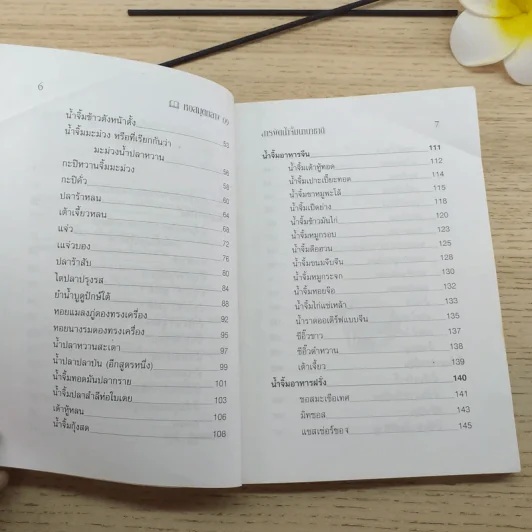 6
น้ำจิ้มข้าวตังหน้าตั้ง
น้ำจิ้มมะม่วง หรือที่เรียกกันว่า 53
มะม่วงน้ำปลาหวาน
กะปิหวานจิ้มมะม่วง 56
กะปิคั่ว 58
ปลาร้าหลน 60
เต้าเจี้ยวหลน 64
แจ่ว 68
แจ่วบอง 72
ปลาร้าสับ 76
ไตปลาปรุงรส 80
ยำน้ำบูดูปักษ์ใต้ 84
หอยแมลงภู่ดองทรงเครื่อง 88
หอยนางรมดองทรงเครื่อง 92
น้ำปลาหวานสะเดา 95
น้ำปลาปลาป่น (อีกสูตรหนึ่ง) 97
น้ำจิ้มทอดมันปลากราย 99
น้ำจิ้มปลาสำลีห่อใบเตย 101
เต้าหู้หลน 103
น้ำจิ้มกุ้งสด 106
108
7
น้ำจิ้มอาหารจีน 111
น้ำจิ้มเต้าหู้ทอด 112
น้ำจิ้มเปาะเปี๊ยะทอด 114
น้ำจิ้มขาหมูพะโล้ 115
น้ำจิ้มเป็ดย่าง 118
น้ำจิ้มข้าวมันไก่ 120
น้ำจิ้มหมูกรอบ 123
น้ำจิ้มลือสวน 125
น้ำจิ้มขนมจีบจีน 128
น้ำจิ้มหมูกระจก 130
น้ำจิ้มหอยจ๊อ 132
น้ำจิ้มไก่แช่เหล้า 133
น้ำราดออเดิร์ฟแบบจีน 135
ซีอิ๊วขาว 137
ซีอิ๊วดำหวาน 138
เต้าเจี้ยว 139
น้ำจิ้มอาหารฝรั่ง 140
ซอสมะเขือเทศ 141
มิทซอส 143
แซลเซอร์ซอส 145